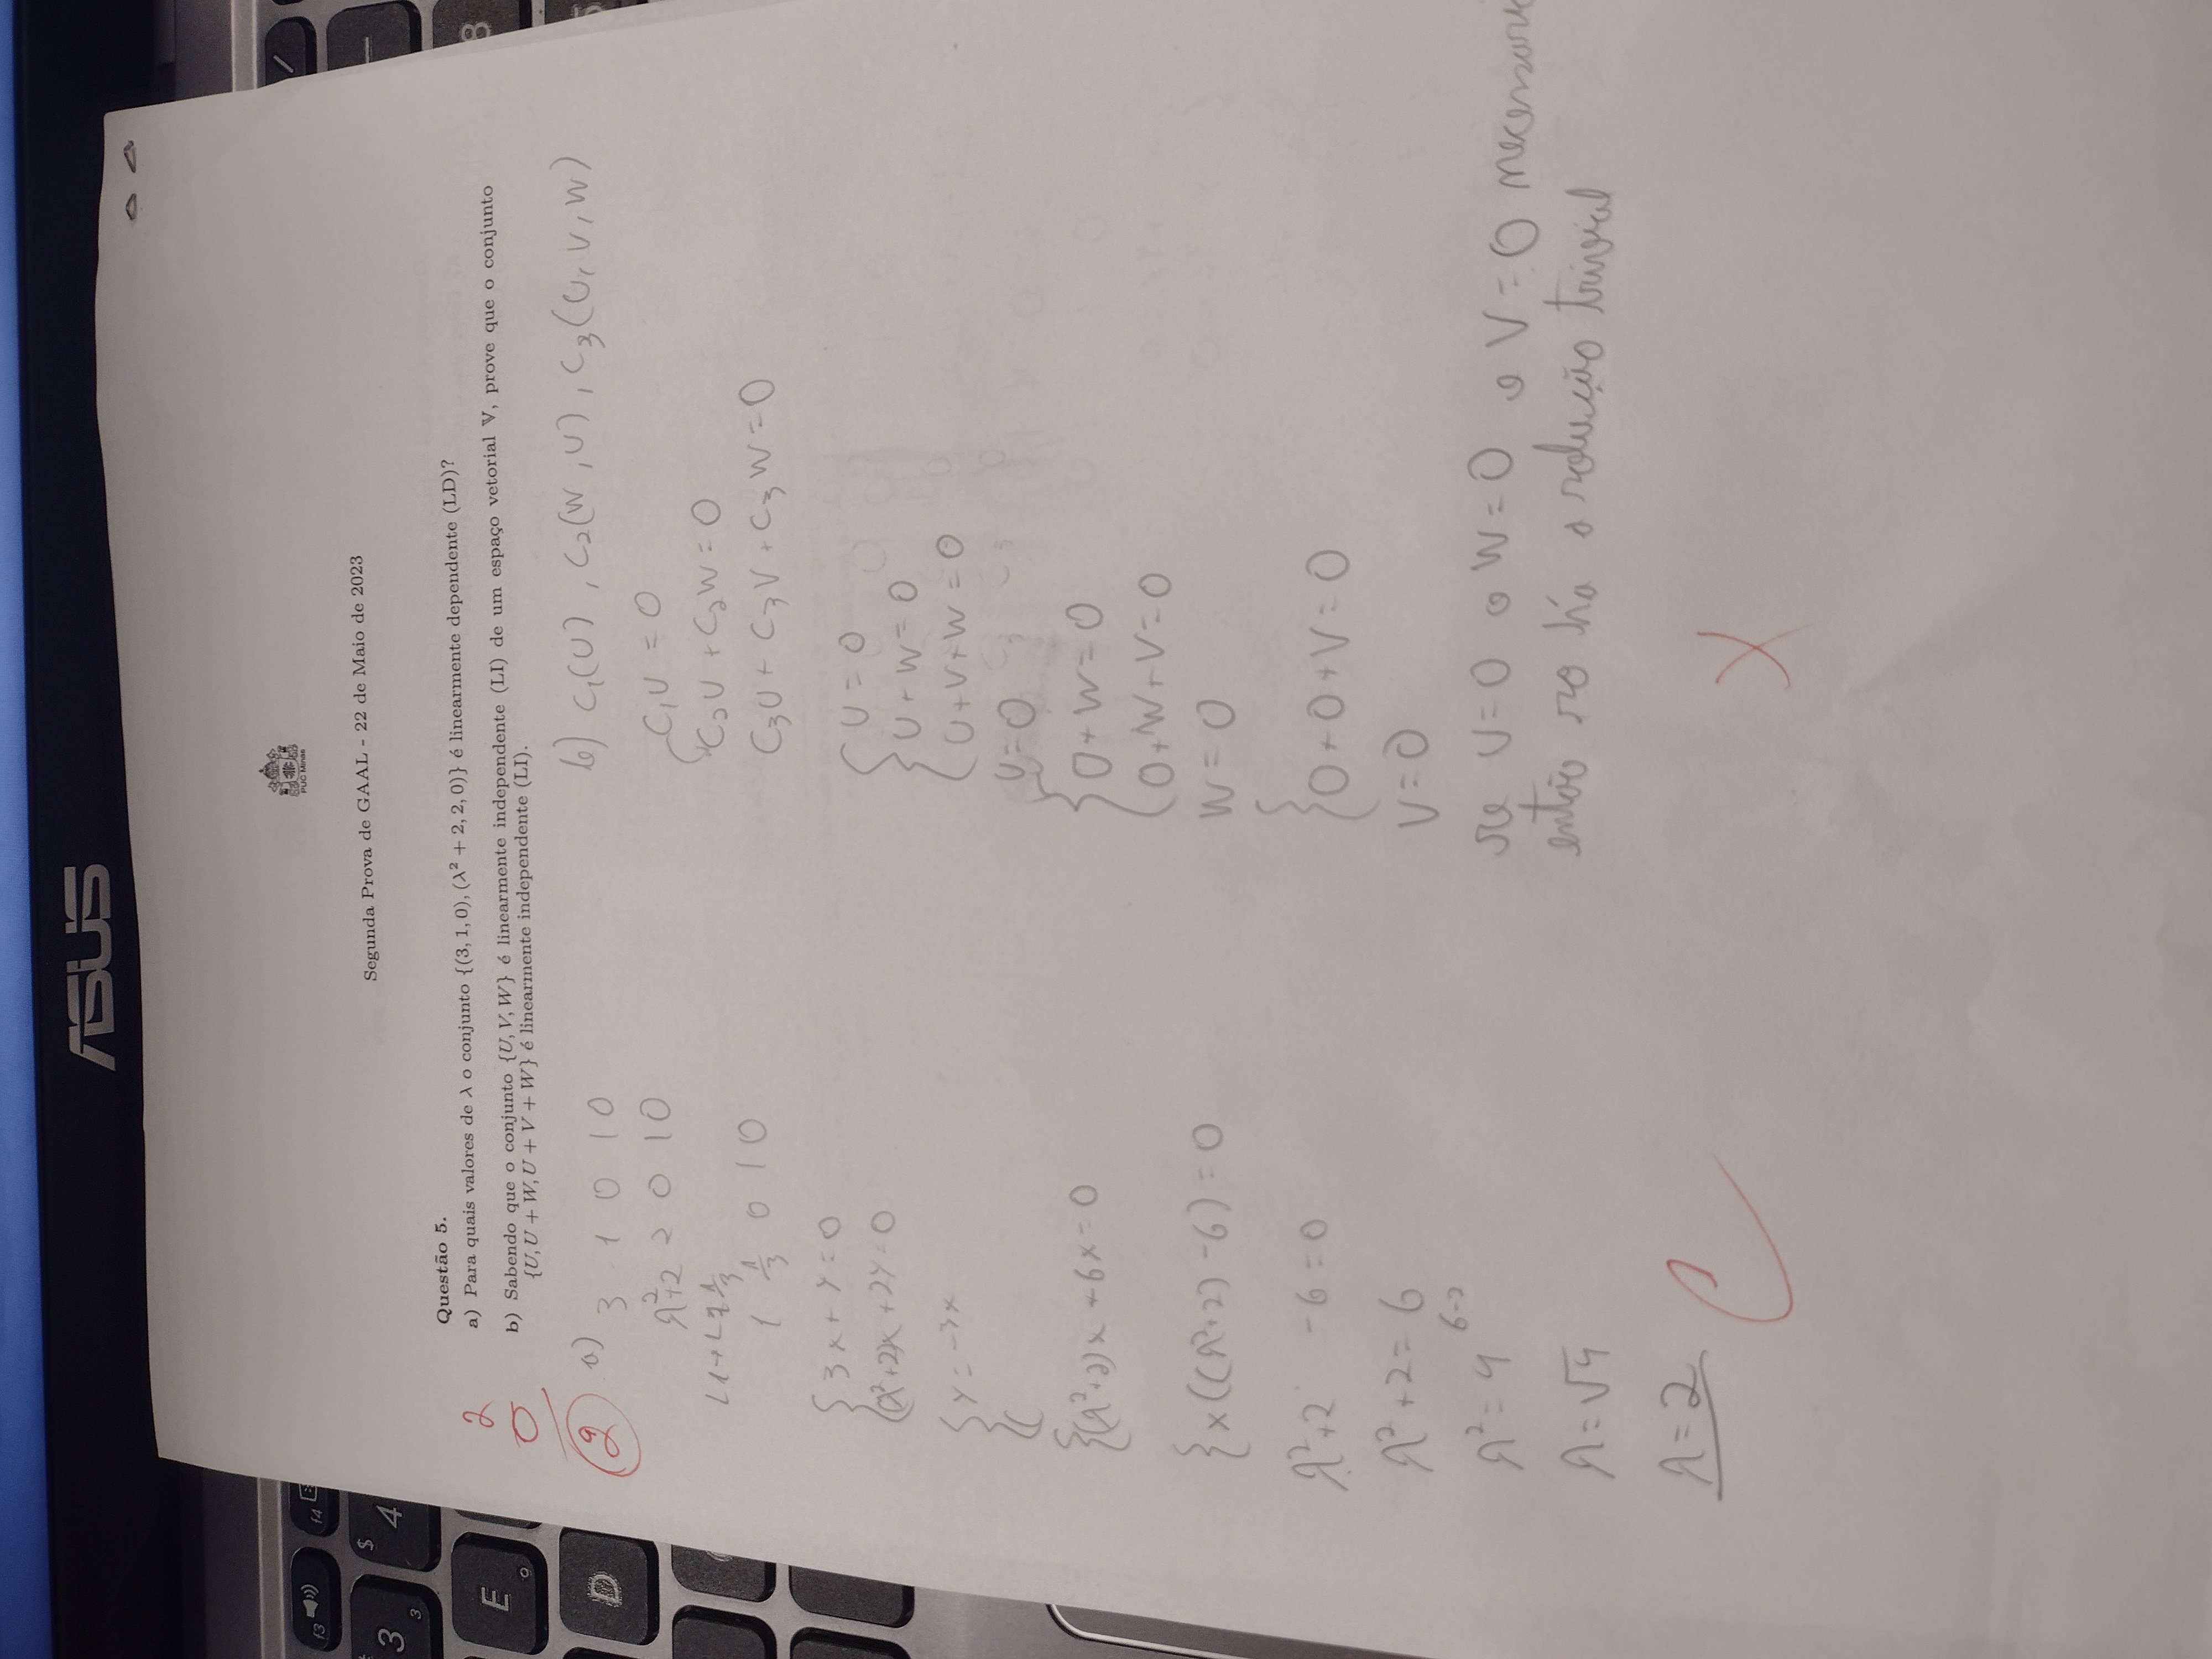 ASUS
f3
f4
3
3
$
4
E
9
D
/
8
PUC Minas
Segunda Prova de GAAL - 22 de Maio de 2023
Questão 5.
a) Para quais valores de λ o conjunto {(3, 1, 0), (λ² + 2, 2, 0)} é linearmente dependente (LD)?
b) Sabendo que o conjunto {U, V, W} é linearmente independente (LI) de um espaço vetorial 𝕍, prove que o conjunto
{U, U + W, U + V + W} é linearmente independente (LI).
2
0
2
a)
3 1 0 | 0
λ²+2 2 0 | 0
1 1/3 0 | 0
{ 3x + y = 0
(λ²+2)x + 2y = 0
{ y = -3x
(
{ (λ²+2)x + 6x = 0
{ x((λ²+2) - 6) = 0
λ²+2 - 6 = 0
λ² + 2 = 6
λ² = 4 6-2
λ = √4
λ = 2
C
b) C₁(U), C₂(W, U), C₃(U, V, W)
C₁U = 0
C₂U + C₂W = 0
C₃U + C₃V + C₃W = 0
{ U = 0
U + W = 0
U + V + W = 0
U = 0
{ 0 + W = 0
0 + W + V = 0
W = 0
{ 0 + 0 + V = 0
V = 0
se U = 0 e W = 0 e V = 0
então so há a solução trivial
X